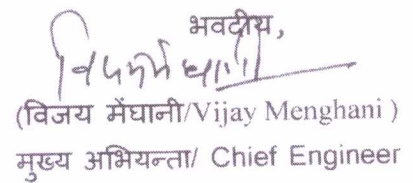 भवदीय,
(विजय मेंघानी/Vijay Menghani )
मुख्य अभियन्ता/ Chief Engineer